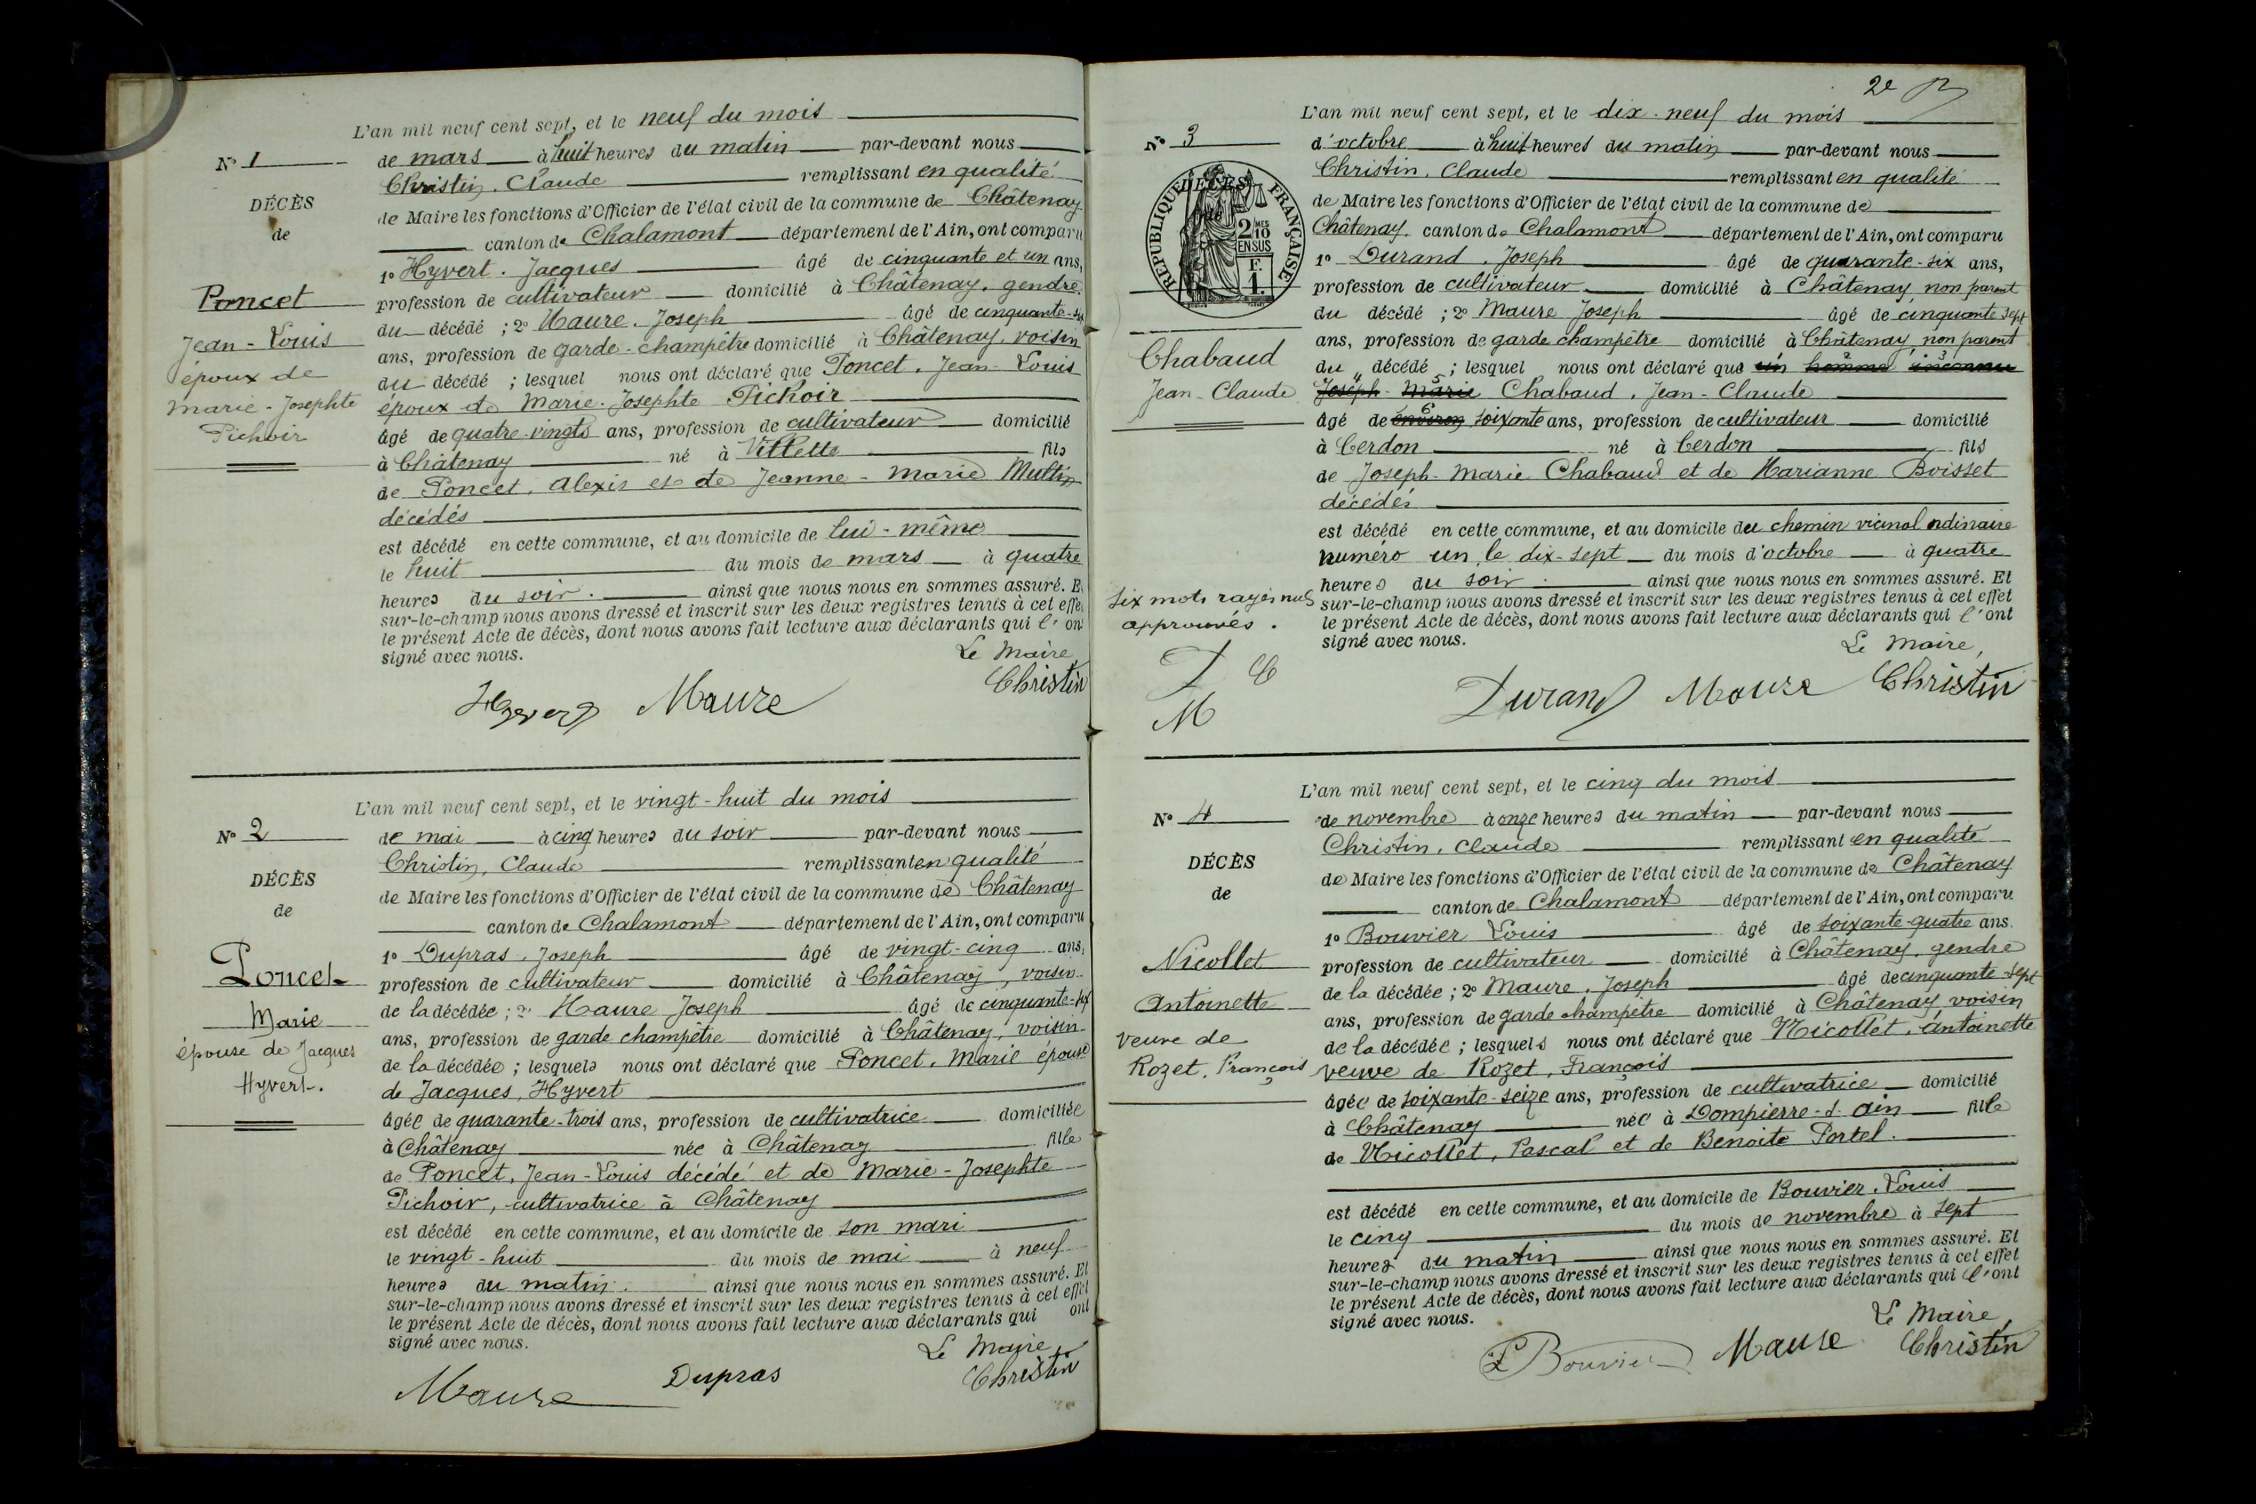 L'an mil neuf cent sept, et le neuf du mois
N° 1
de mars à huit heures du matin par-devant nous
Christin, Claude remplissant en qualité
DÉCÈS
de Maire les fonctions d'Officier de l'état civil de la commune de Châtenay
de
canton de Chalamont département de l'Ain, ont comparu
1° Hyvert. Jacques âgé de cinquante et un ans,
Poncet
profession de cultivateur domicilié à Châtenay, gendre
du décédé ; 2° Maure. Joseph âgé de cinquante-six
Jean-Louis
ans, profession de garde-champêtre domicilié à Châtenay, voisin
époux de
du décédé ; lesquel nous ont déclaré que Poncet. Jean-Louis
Marie-Josephte
époux de Marie-Josephte Pichoir
Pichoir
âgé de quatre-vingts ans, profession de cultivateur domicilié
à Châtenay né à Villette fils
de Poncet, Alexis et de Jeanne-Marie Multin
décédés
est décédé en cette commune, et au domicile de lui-même
le huit du mois de mars à quatre
heures du soir. ainsi que nous nous en sommes assuré. E
sur-le-champ nous avons dressé et inscrit sur les deux registres tenus à cet effe
le présent Acte de décès, dont nous avons fait lecture aux déclarants qui l'on
signé avec nous.
Le Maire
Christin
Hyvert Maure
L'an mil neuf cent sept, et le vingt-huit du mois
N° 2
de mai à cinq heures du soir par-devant nous
Christin, Claude remplissant en qualité
DÉCÈS
de Maire les fonctions d'Officier de l'état civil de la commune de Châtenay
de
canton de Chalamont département de l'Ain, ont comparu
1° Dupras. Joseph âgé de vingt-cinq ans,
Poncet
profession de cultivateur domicilié à Châtenay, voisin
de la décédée ; 2° Maure Joseph âgé de cinquante-six
Marie
ans, profession de garde champêtre domicilié à Châtenay, voisin
épouse de Jacques
de la décédée ; lesquels nous ont déclaré que Poncet. Marie épouse
Hyvert.
de Jacques, Hyvert
âgée de quarante-trois ans, profession de cultivatrice domiciliée
à Châtenay née à Châtenay fille
de Poncet, Jean-Louis décédé et de Marie-Josephte
Pichoir, cultivatrice à Châtenay
est décédé en cette commune, et au domicile de son mari
le vingt-huit du mois de mai à neuf
heures du matin. ainsi que nous nous en sommes assuré. Et
sur-le-champ nous avons dressé et inscrit sur les deux registres tenus à cet effet
le présent Acte de décès, dont nous avons fait lecture aux déclarants qui ont
signé avec nous.
Le Maire,
Christin
Maure Dupras
2e
L'an mil neuf cent sept, et le dix-neuf du mois
N° 3
d'octobre à huit heures du matin par-devant nous
Christin, Claude remplissant en qualité
DÉCÈS
RÉPUBLIQUE FRANÇAISE
2/10 MES
EN SUS
F.
1.
de Maire les fonctions d'Officier de l'état civil de la commune de
Châtenay canton de Chalamont département de l'Ain, ont comparu
1° Durand. Joseph âgé de quarante-six ans,
profession de cultivateur domicilié à Châtenay, non parent
du décédé ; 2° Maure Joseph âgé de cinquante sept
Chabaud
ans, profession de garde champêtre domicilié à Châtenay, non parent
du décédé ; lesquel nous ont déclaré que un homme inconnu
Jean-Claude
Joseph-Marie Chabaud, Jean-Claude
âgé de environ soixante ans, profession de cultivateur domicilié
à Cerdon né à Cerdon fils
de Joseph-Marie Chabaud et de Marianne Boisset
décédés
est décédé en cette commune, et au domicile du chemin vicinal ordinaire
numéro un, le dix-sept du mois d'octobre à quatre
heures du soir. ainsi que nous nous en sommes assuré. Et
six mots rayés nuls
sur-le-champ nous avons dressé et inscrit sur les deux registres tenus à cet effet
approuvés.
le présent Acte de décès, dont nous avons fait lecture aux déclarants qui l'ont
signé avec nous.
Le Maire,
D C
M
Durand Maure Christin
L'an mil neuf cent sept, et le cinq du mois
N° 4
de novembre à onze heures du matin par-devant nous
Christin, Claude remplissant en qualité
DÉCÈS
de Maire les fonctions d'Officier de l'état civil de la commune de Châtenay
de
canton de Chalamont département de l'Ain, ont comparu
1° Bouvier Louis âgé de soixante-quatre ans.
Nicollet
profession de cultivateur domicilié à Châtenay, gendre
de la décédée ; 2° Maure, Joseph âgé de cinquante-sept
Antoinette
ans, profession de garde champêtre domicilié à Châtenay, voisin
veuve de
de la décédée ; lesquels nous ont déclaré que Nicollet, Antoinette
Rozet, François
veuve de Rozet, François
âgée de soixante-seize ans, profession de cultivatrice domicilié
à Châtenay née à Dompierre-s-Ain fille
de Nicollet, Pascal et de Benoite Portel.
est décédé en cette commune, et au domicile de Bouvier, Louis
le cinq du mois de novembre à sept
heures du matin ainsi que nous nous en sommes assuré. Et
sur-le-champ nous avons dressé et inscrit sur les deux registres tenus à cet effet
le présent Acte de décès, dont nous avons fait lecture aux déclarants qui l'ont
signé avec nous.
Le Maire,
L Bouvier Maure Christin